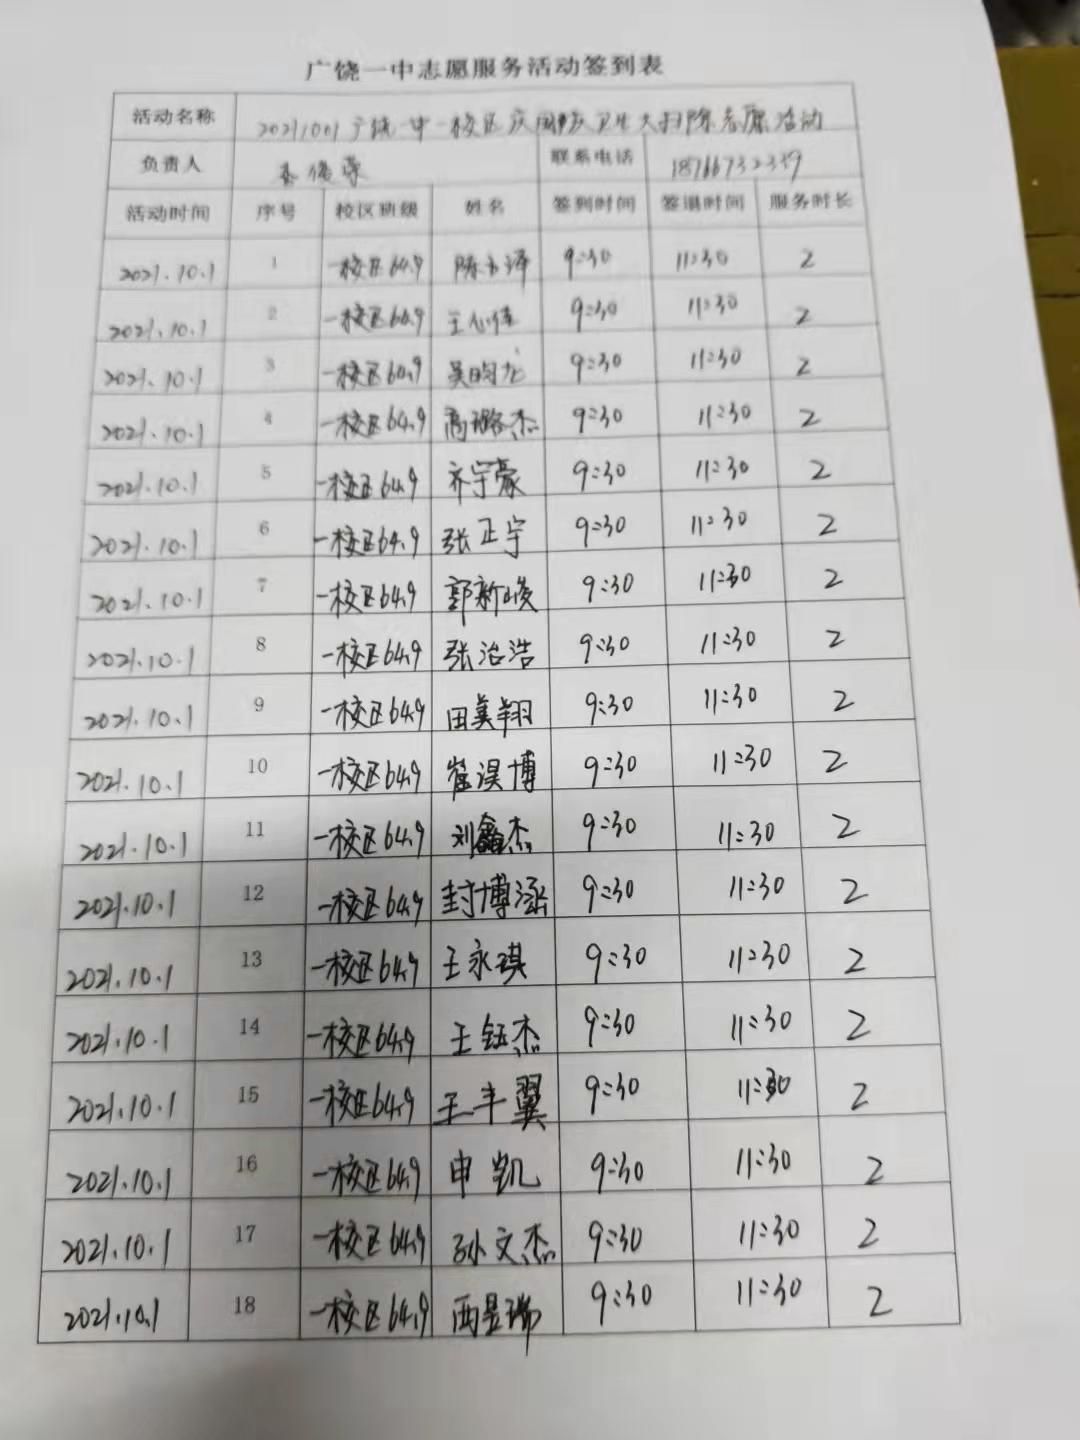 广饶一中志愿服务活动签到表
活动名称 20211001广饶一中一校区庆国庆卫生大扫除志愿活动
负责人 联系电话 18766732339
活动时间 序号 校区班级 姓名 签到时间 签退时间 服务时长
2021.10.1 1 一校区64.9 9:30 11:30 2
2021.10.1 2 一校区64.9 王心怪 9:30 11:30 2
2021.10.1 3 一校区64.9 吴昀龙 9:30 11:30 2
2021.10.1 4 一校区64.9 高璐杰 9:30 11:30 2
2021.10.1 5 一校区64.9 齐宇豪 9:30 11:30 2
2021.10.1 6 一校区64.9 张正宇 9:30 11:30 2
2021.10.1 7 一校区64.9 郭新峻 9:30 11:30 2
2021.10.1 8 一校区64.9 张治浩 9:30 11:30 2
2021.10.1 9 一校区64.9 田美翔 9:30 11:30 2
2021.10.1 10 一校区64.9 崔淏博 9:30 11:30 2
2021.10.1 11 一校区64.9 刘鑫杰 9:30 11:30 2
2021.10.1 12 一校区64.9 封博涵 9:30 11:30 2
2021.10.1 13 一校区64.9 王永琪 9:30 11:30 2
2021.10.1 14 一校区64.9 王钰杰 9:30 11:30 2
2021.10.1 15 一校区64.9 王丰翼 9:30 11:30 2
2021.10.1 16 一校区64.9 申凯 9:30 11:30 2
2021.10.1 17 一校区64.9 孙文杰 9:30 11:30 2
2021.10.1 18 一校区64.9 西昱瑞 9:30 11:30 2